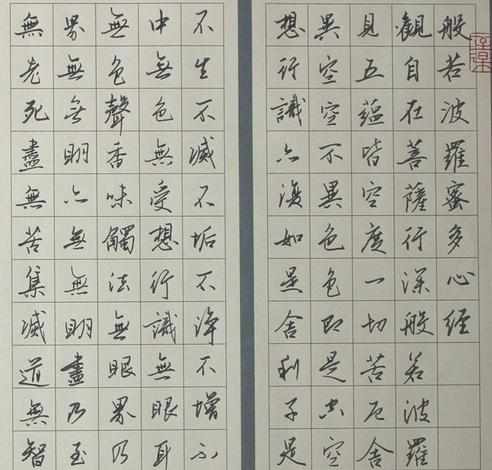 般若波羅蜜多心經
觀自在菩薩行深般若波羅
見五蘊皆空度一切苦厄舍
異空空不異色色即是空空
想行識亦復如是舍利子是
不生不滅不垢不淨不增不
中無色無受想行識無眼耳
無色聲香味觸法無眼界乃
界無無明亦無無明盡乃至
無老死盡無苦集滅道無智